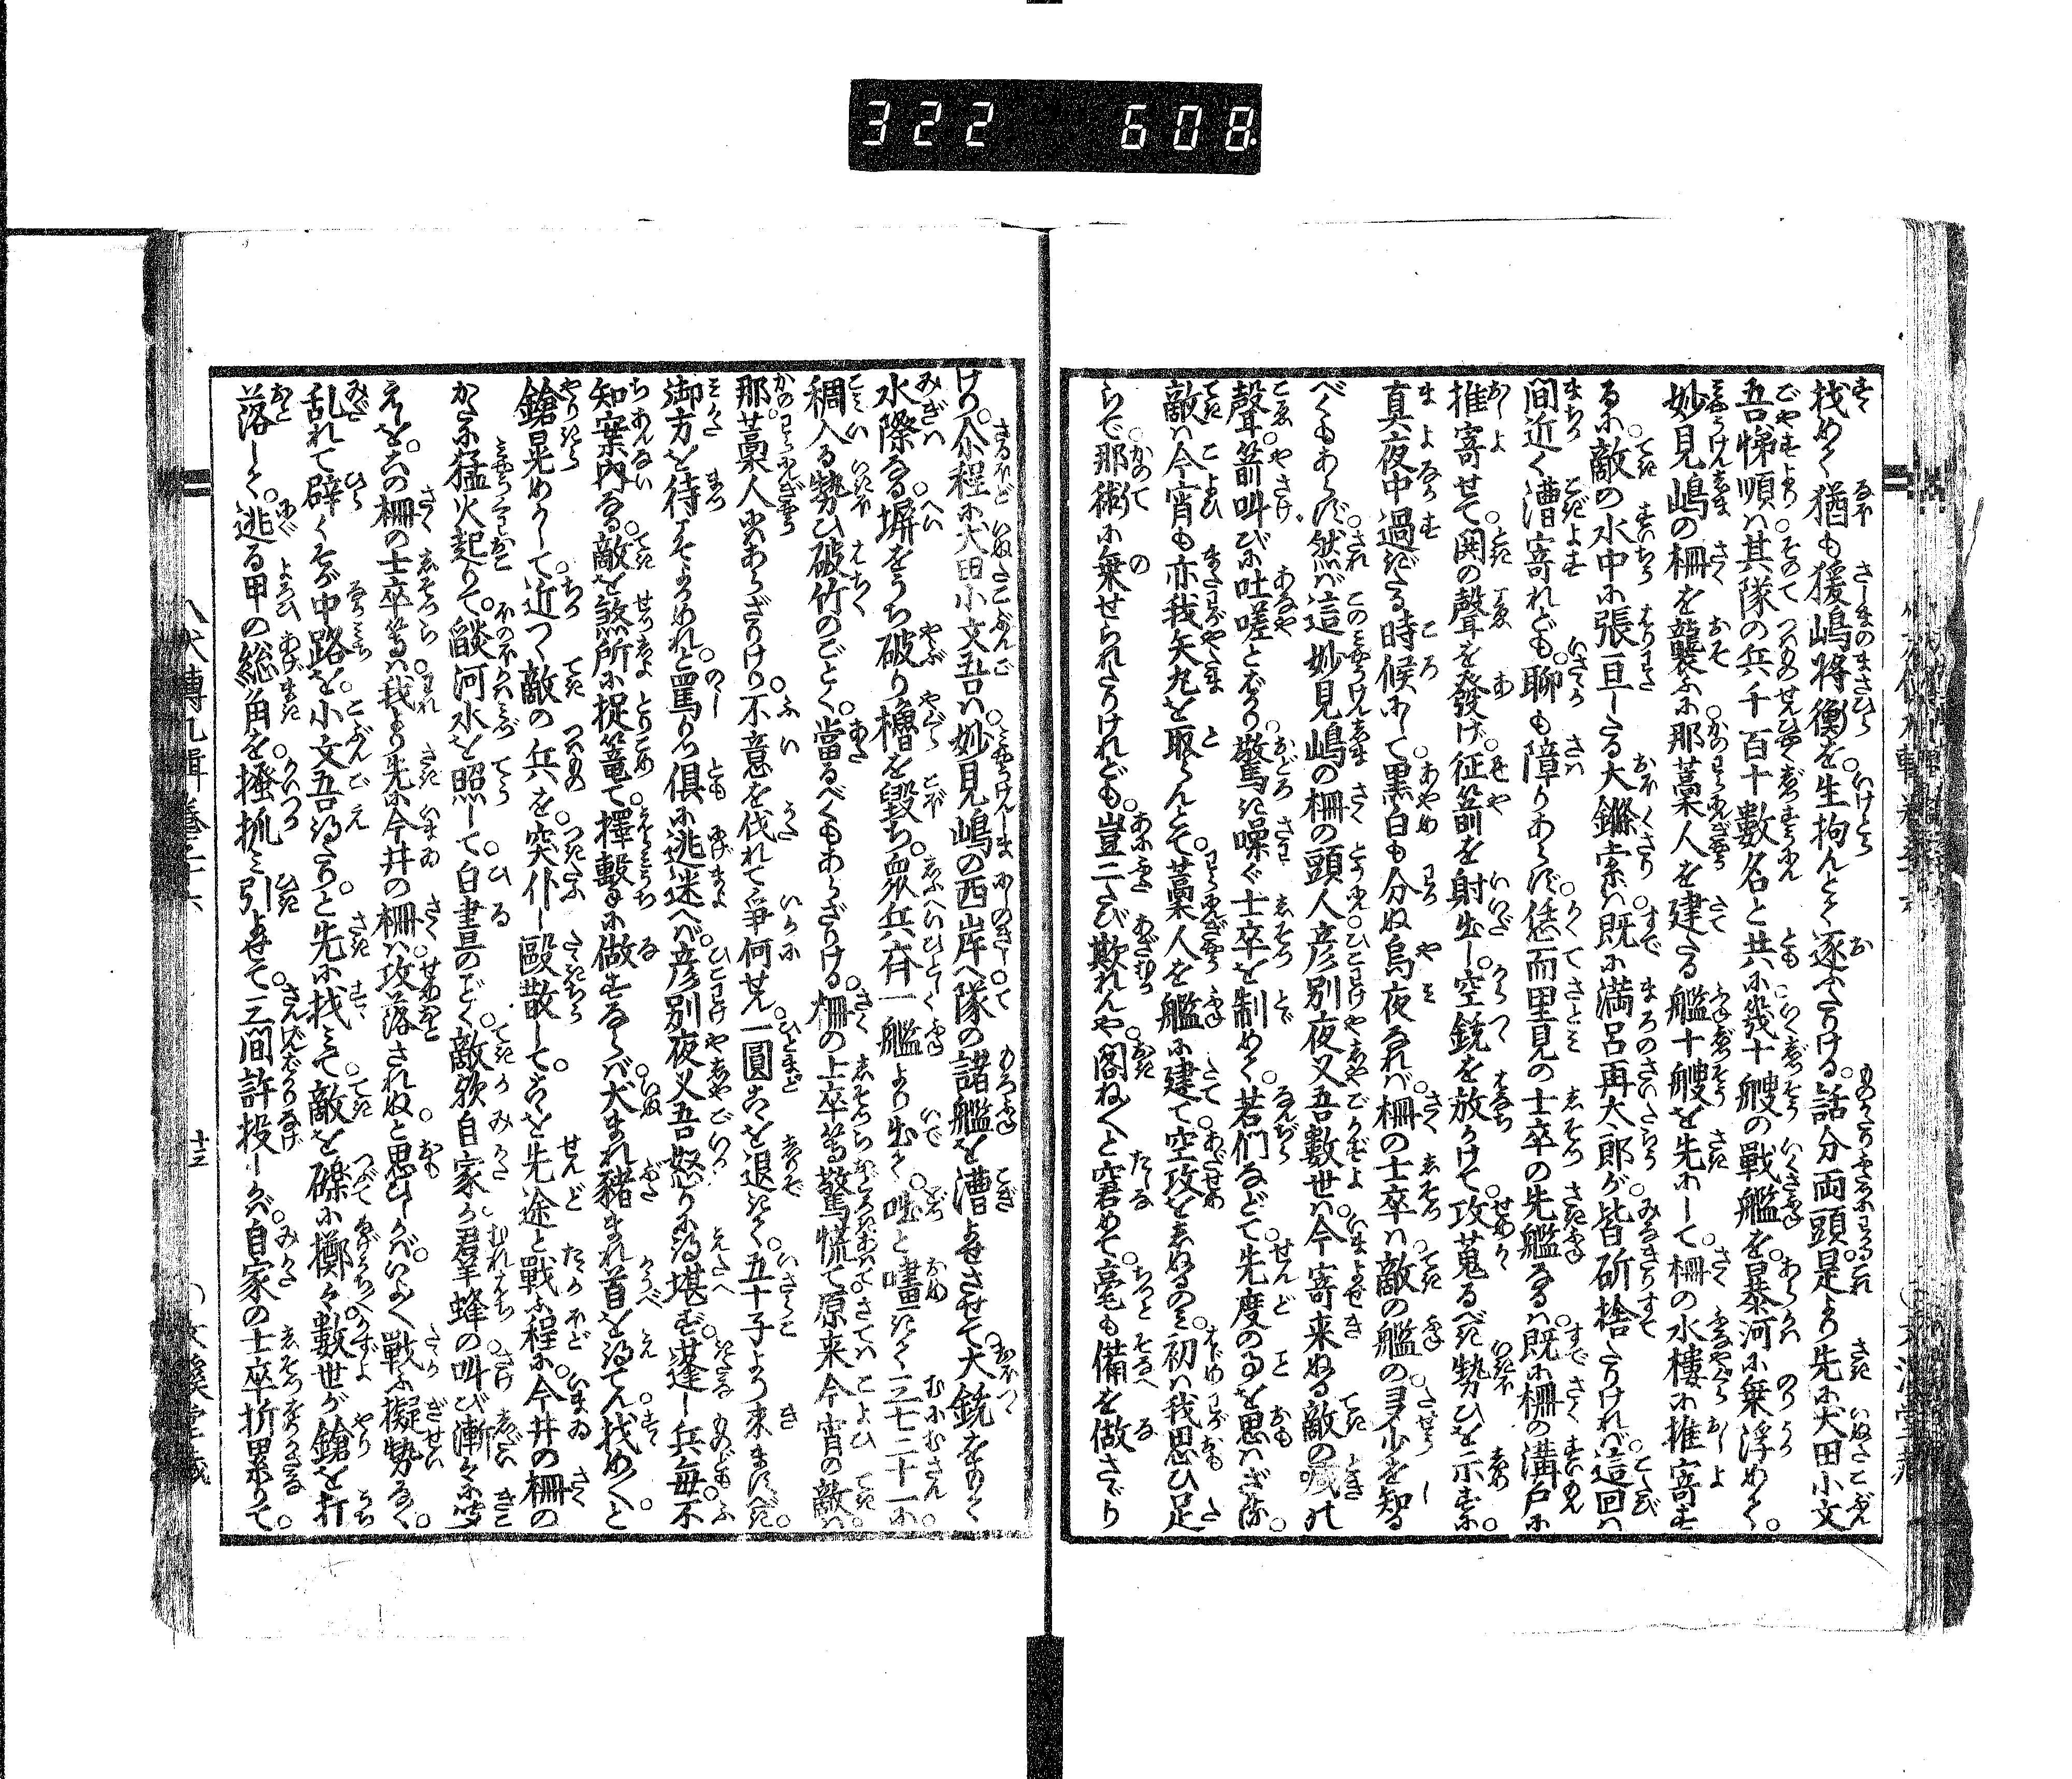 322 608
找めて猶も猨嶋将衡を生拘んとて逐ふたりける。話分両頭。是より先に犬田小文
吾悌順は其隊の兵千百十数名と共に幾十艘の戦艦を暴河に乗浮めて。
妙見嶋の柵を襲ふに那藁人を建たる艦十艘を先にして。柵の水樓に推寄す
るに。敵の水中に張亘したる大鏈索は既に満呂再太郎が皆斫捨たりければ。這回は
間近く漕寄れども。聊も障りあらず。恁而里見の士卒の先艦なるは。既に柵の溝戸に
推寄せて。鬨の聲を發げ。征箭を射出し。空銃を放かけて。攻蒐るべき勢ひを示すに。
真夜中過ぎたる時候にして。黒白も分ぬ烏夜なれば。柵の士卒は敵の艦の多少を知る
べくもあらず。然ば這妙見嶋の柵の頭人彦別夜叉吾數世は。今寄来ぬる敵の喊の
聲。箭叫びに吐嗟とばかり。驚き噪ぐ士卒を制めて。若們などて。先度の事を思はざる。
敵は今宵も亦我矢丸を取らんとて。藁人を艦に建て。空攻をしぬるのみ。初は我思ひ足
らで。那術に乗せられたりけれども。豈二たび欺れんや。閣ねくと窘めて。毫も備を做さざり
けり。介程に犬田小文吾は。妙見嶋の西岸へ隊の諸艦を漕よせさせて。大銃をもて
水際なる塀をうち破り。櫓を毀ち。衆兵斉一艦より出て。咄と嚄きて二七二十一に
稠入る勢ひ破竹のごとく。當るべくもあらざりける。柵の士卒等驚慌て。原来今宵の敵は
那藁人にあらざりけり。不意を伐れて争何せん。一圓こゝを退きて。五十子より来ますべき。
御方を待こそよかめれと罵りつ倶に逃迷へば。彦別夜叉吾怒りに得堪ず。蓬し兵毎。不
知案内なる。敵を煞所に捉篭て。擇撃に做すならば。犬まれ猪まれ首を得てん。找めくと
鎗晃めかして。近つく敵の兵を。突仆し毆散して。こゝを先途と戦ふ程に。今井の柵の
かたに猛火起りて。燄河水を照して。白晝のごとく。敵歟自家か。群蜂の叫び漸々に
えしを。この柵の士卒等は。我より先に今井の柵は。攻落されぬと思ひしかば。いよゝ戦ふ擬勢なく。
乱れて辟くその中路を。小文吾得たりと先に找みて。敵を礫に擲々。數世が鎗を打
落して。逃る甲の総角を。掻抓み引よせて。三間許投しかば。自家の士卒折累りて。
八犬傳九輯巻三十六
十三
文溪堂藏